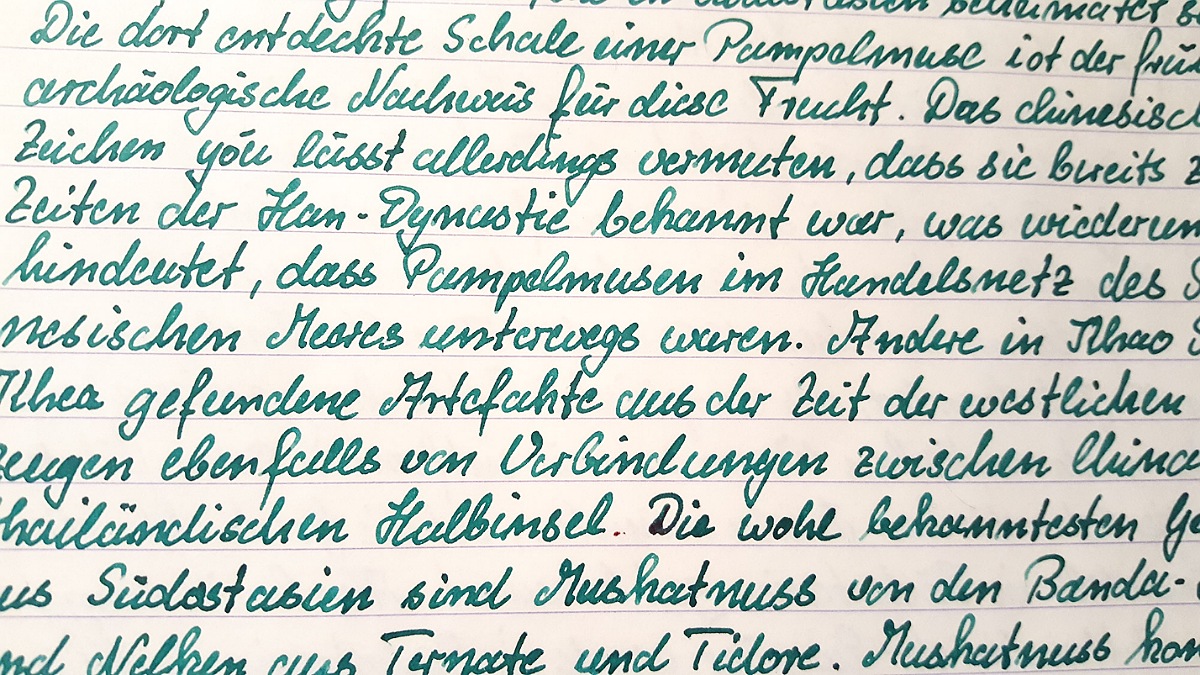 in Südostasien beheimatet
Die dort entdeckte Schale einer Pampelmuse ist der
archäologische Nachweis für diese Frucht. Das
Zeichen yóu lässt allerdings vermuten, dass sie bereits
Zeiten der Han-Dynastie bekannt war, was
hindeutet, dass Pampelmusen im Handelsnetz des
nesischen Meeres unterwegs waren. Andere in Khao
Khea gefundene Artefakte aus der Zeit der westlichen
zeugen ebenfalls von Verbindungen zwischen China
thailändischen Halbinsel. Die wohl bekanntesten
us Südostasien sind Muskatnuss von den Banda-
nd Nelken aus Ternate und Tidore. Muskatnuss